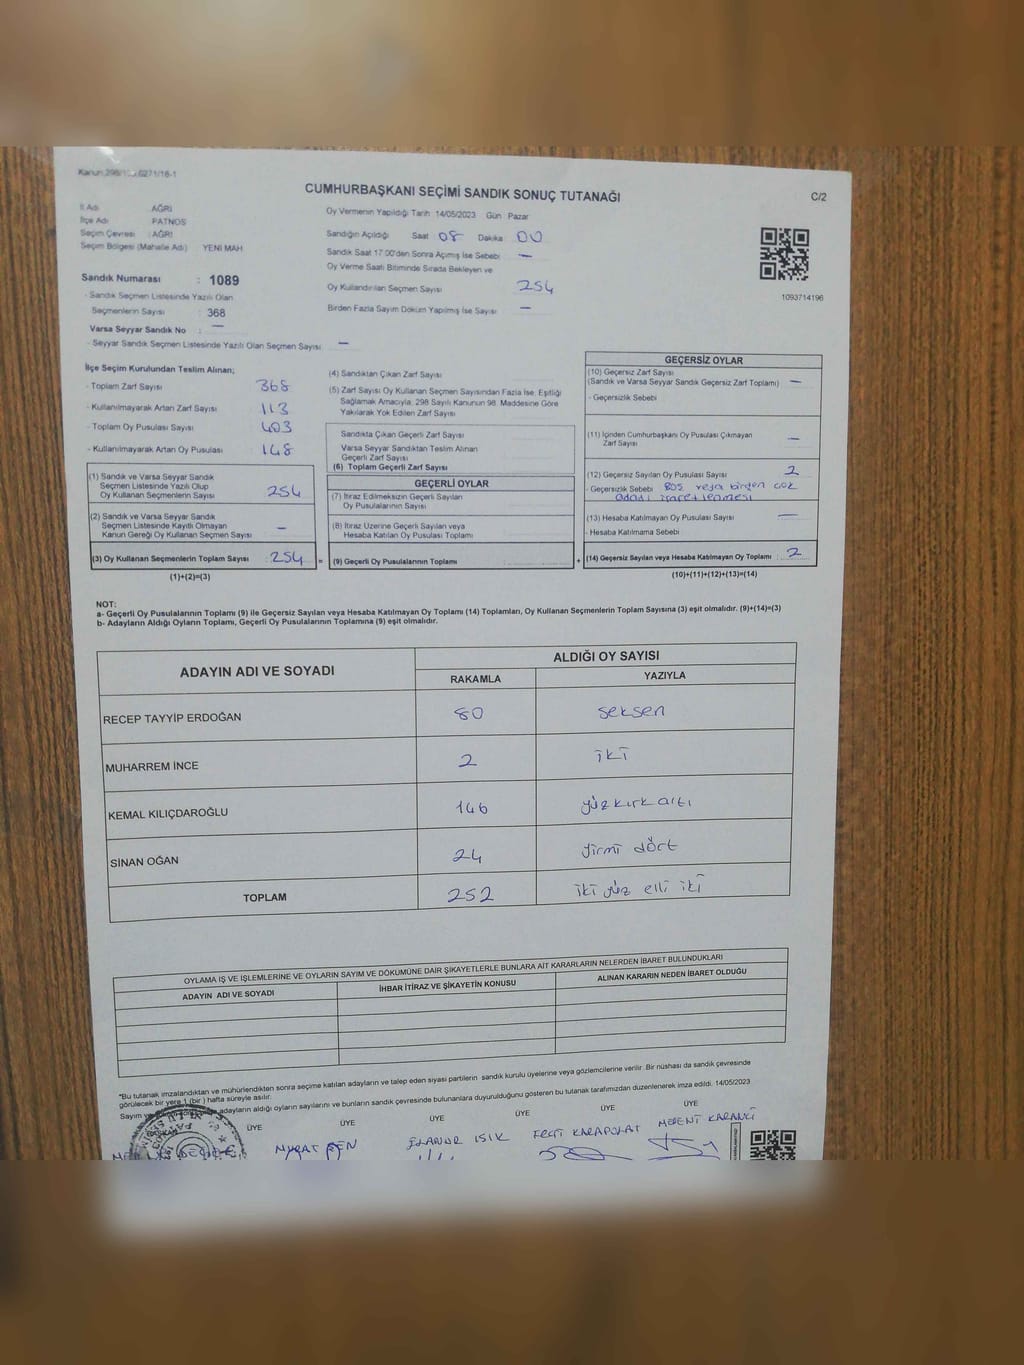 CUMHURBAŞKANI SEÇİMİ SANDIK SONUÇ TUTANAĞI
C/2
İl Adı AĞRI
İlçe Adı PATNOS
Seçim Çevresi : AĞRI
Seçim Bölgesi (Mahalle Adı) YENİ MAH
Oy Vermenin Yapıldığı Tarih 14/05/2023 Gün Pazar
Sandığın Açıldığı Saat 08 Dakika 00
Sandık Saat 17.00'den Sonra Açımış İse Sebebi —
Oy Verme Saati Bitiminde Sırada Bekleyen ve
Oy Kullandırılan Seçmen Sayısı 254
Birden Fazla Sayım Döküm Yapılmış İse Sayısı —
1093714196
Sandık Numarası : 1089
- Sandık Seçmen Listesinde Yazılı Olan
Seçmenlerin Sayısı : 368
Varsa Seyyar Sandık No : —
- Seyyar Sandık Seçmen Listesinde Yazılı Olan Seçmen Sayısı —
İlçe Seçim Kurulundan Teslim Alınan;
- Toplam Zarf Sayısı 368
- Kullanılmayarak Artan Zarf Sayısı 113
- Toplam Oy Pusulası Sayısı 403
- Kullanılmayarak Artan Oy Pusulası 148
(1) Sandık ve Varsa Seyyar Sandık
Seçmen Listesinde Yazılı Olup
Oy Kullanan Seçmenlerin Sayısı 254
(2) Sandık ve Varsa Seyyar Sandık
Seçmen Listesinde Kayıtlı Olmayan
Kanun Gereği Oy Kullanan Seçmen Sayısı —
(3) Oy Kullanan Seçmenlerin Toplam Sayısı 254 =
(1)+(2)=(3)
(4) Sandıktan Çıkan Zarf Sayısı
(5) Zarf Sayısı Oy Kullanan Seçmen Sayısından Fazla İse, Eşitliği
Sağlamak Amacıyla, 298 Sayılı Kanunun 98. Maddesine Göre
Yakılarak Yok Edilen Zarf Sayısı
Sandıkta Çıkan Geçerli Zarf Sayısı
Varsa Seyyar Sandıktan Teslim Alınan
Geçerli Zarf Sayısı
(6) Toplam Geçerli Zarf Sayısı
GEÇERLİ OYLAR
(7) İtiraz Edilmeksizin Geçerli Sayılan
Oy Pusulalarının Sayısı
(8) İtiraz Üzerine Geçerli Sayılan veya
Hesaba Katılan Oy Pusulası Toplamı
(9) Geçerli Oy Pusulalarının Toplamı +
GEÇERSİZ OYLAR
(10) Geçersiz Zarf Sayısı
(Sandık ve Varsa Seyyar Sandık Geçersiz Zarf Toplamı) —
- Geçersizlik Sebebi
(11) İçinden Cumhurbaşkanı Oy Pusulası Çıkmayan
Zarf Sayısı —
(12) Geçersiz Sayılan Oy Pusulası Sayısı 2
- Geçersizlik Sebebi Boş veya birden çok
adayı işaretlenmesi
(13) Hesaba Katılmayan Oy Pusulası Sayısı —
- Hesaba Katılmama Sebebi
(14) Geçersiz Sayılan veya Hesaba Katılmayan Oy Toplamı 2
(10)+(11)+(12)+(13)=(14)
NOT:
a- Geçerli Oy Pusulalarının Toplamı (9) ile Geçersiz Sayılan veya Hesaba Katılmayan Oy Toplamı (14) Toplamları, Oy Kullanan Seçmenlerin Toplam Sayısına (3) eşit olmalıdır. (9)+(14)=(3)
b- Adayların Aldığı Oyların Toplamı, Geçerli Oy Pusulalarının Toplamına (9) eşit olmalıdır.
ADAYIN ADI VE SOYADI ALDIĞI OY SAYISI
RAKAMLA YAZIYLA
RECEP TAYYİP ERDOĞAN 80 seksen
MUHARREM İNCE 2 iki
KEMAL KILIÇDAROĞLU 146 yüzkırkaltı
SİNAN OĞAN 24 yirmi dört
TOPLAM 252 iki yüz elli iki
OYLAMA İŞ VE İŞLEMLERİNE VE OYLARIN SAYIM VE DÖKÜMÜNE DAİR ŞİKAYETLERLE BUNLARA AİT KARARLARIN NELERDEN İBARET BULUNDUKLARI
ADAYIN ADI VE SOYADI İHBAR İTİRAZ VE ŞİKAYETİN KONUSU ALINAN KARARIN NEDEN İBARET OLDUĞU
*Bu tutanak imzalandıktan ve mühürlendikten sonra seçime katılan adayların ve talep eden siyasi partilerin sandık kurulu üyelerine veya gözlemcilerine verilir. Bir nüshası da sandık çevresinde
görülecek bir yere 1 (bir) hafta süreyle asılır.
Sayım ve adayların aldığı oyların sayılarını ve bunların sandık çevresinde bulunanlara duyurulduğunu gösteren bu tutanak tarafımızdan düzenlenerek imza edildi. 14/05/2023
ÜYE ÜYE ÜYE ÜYE ÜYE ÜYE
MURAT ŞEN IŞIK KARAPOLAT